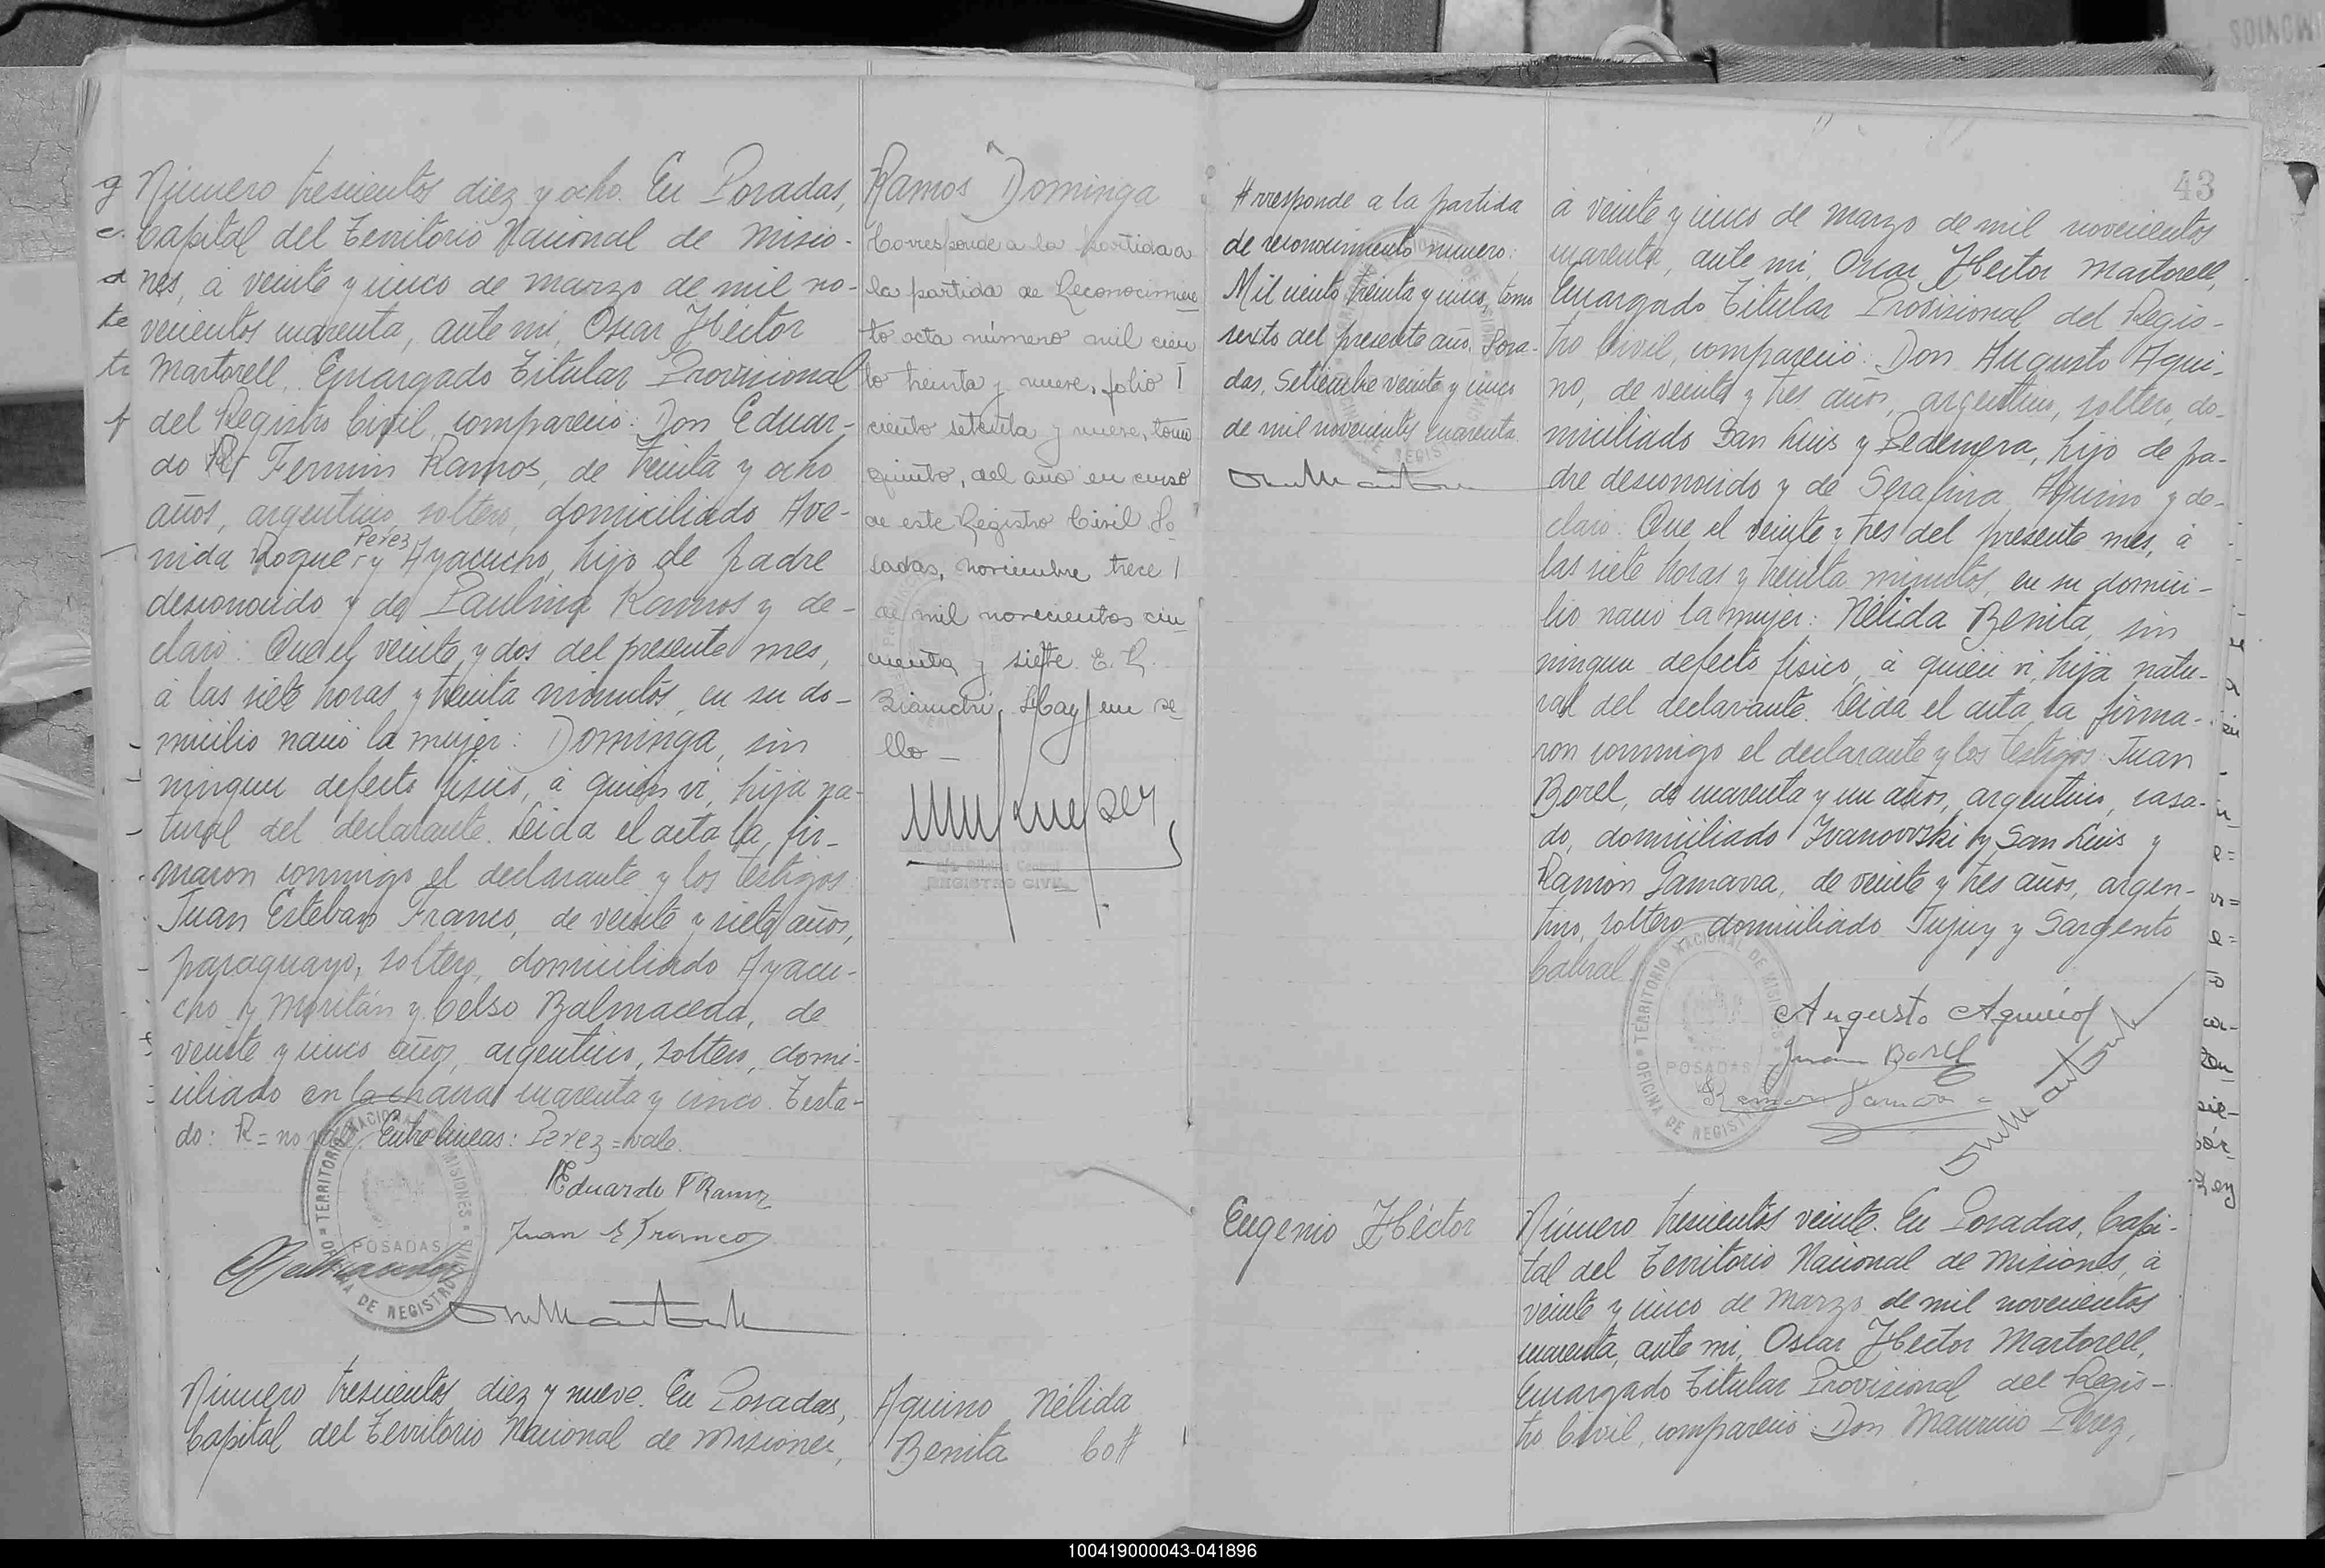 Número trescientos diez y ocho. En Posadas,
Capital del Territorio Nacional de Misio-
nes, á veinte y cinco de marzo de mil no-
vecientos cuarenta, ante mí, Oscar Héctor
Martorell, Encargado Titular Provisional
del Registro Civil, compareció: Don Eduar-
do R Fermin Ramos, de treinta y ocho
años, argentino, soltero, domiciliado Ave-
nida Roque Perez y Ayacucho, hijo de padre
desconocido y de Paulina Ramos y de-
claró: Que el veinte y dos del presente mes,
á las siete horas y treinta minutos, en su do-
micilio nació la mujer: Dominga, sin
ningun defecto físico, á quien ví, hija na-
tural del declarante. Leida el acta la fir-
maron conmigo el declarante y los testigos
Juan Esteban Franco, de veinte y siete años,
paraguayo, soltero, domiciliado Ayacu-
cho y Moritán y Celso Balmaceda, de
veinte y cinco años, argentino, soltero, domi-
ciliado en la chacra cuarenta y cinco. Testa-
do: R = no vale. Entre lineas: Perez = vale.
Eduardo F Ramos
Juan E Franco
TERRITORIO NACIONAL DE MISIONES
POSADAS
OFICINA DE REGISTRO CIVIL
Número trescientos diez y nueve. En Posadas,
Capital del Territorio Nacional de Misiones,
Ramos Dominga
Corresponde a la partida a
la partida de Reconocimien
to acta número mil cien
to treinta y nueve, folio
ciento setenta y nueve, tomo
quinto, del año en curso
de este Registro Civil Po
sadas, noviembre trece
de mil novecientos cin
cuenta y siete. E. R.
Hay un se
llo -
Oficina Central
REGISTRO CIVIL
Aquino Nélida
Benita Co#
43
#rresponde a la partida
de reconocimiento numero:
Mil ciento treinta y cinco, tomo
sexto del presente año. Posa-
das, Setiembre veinte y cinco
de mil novecientos cuarenta.
á veinte y cinco de marzo de mil novecientos
cuarenta, ante mí, Oscar Héctor Martorell,
Encargado Titular Provisional del Regis-
tro Civil, compareció: Don Augusto Aqui-
no, de veinte y tres años, argentino, soltero, do-
miciliado San Luis y Pedernera, hijo de pa-
dre desconocido y de Serafina Aquino y de-
claró: Que el veinte y tres del presente mes, á
las siete horas y treinta minutos, en su domici-
lio nació la mujer: Nélida Benita, sin
ningun defecto físico, á quien ví, hija natu-
ral del declarante. Leida el acta la firma-
ron conmigo el declarante y los testigos: Juan
Borel, de cuarenta y un años, argentino, casa-
do, domiciliado Ivanovski y San Luis y
Ramón Gamarra, de veinte y tres años, argen-
tino, soltero, domiciliado Jujuy y Sargento
Cabral.
Augusto Aquino
Juan Borel
Ramon Gamarra
TERRITORIO NACIONAL DE MISIONES
POSADAS
OFICINA DE REGISTRO CIVIL
Eugenio Héctor
Número trescientos veinte. En Posadas, Capi-
tal del Territorio Nacional de Misiones, á
veinte y cinco de Marzo de mil novecientos
cuarenta, ante mí, Oscar Héctor Martorell,
Encargado Titular Provisional del Regis-
tro Civil, compareció: Don Mauricio Perez,
100419000043-041896